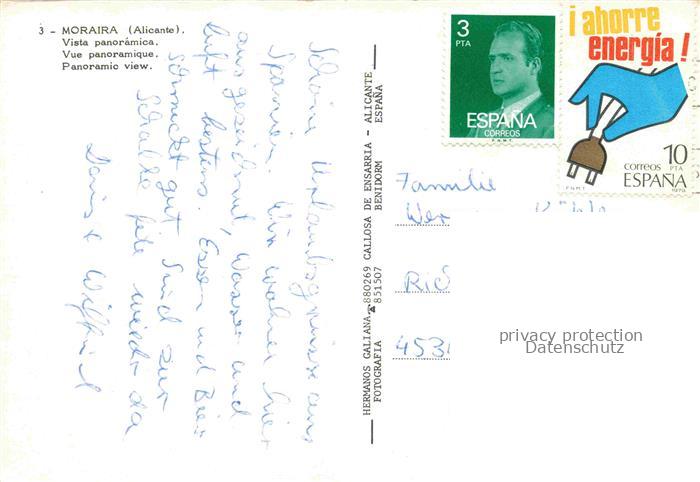 3 - MORAIRA (Alicante).
Vista panorámica.
Vue panoramique.
Panoramic view.
Schöne Urlaubsgrüsse aus
Spanien. Wir wohnen hier
ausgezeichnet, Wasser und
Luft bestens. Essen und Bier
schmeckt gut. Sind zur
Schalke fete wieder da
Doris + Wilfried
HERMANOS GALIANA - 880269 CALLOSA DE ENSARRIA - ALICANTE
FOTOGRAFIA 851507 BENIDORM ESPAÑA
3
PTA
ESPAÑA
CORREOS
F.N.M.T.
¡ ahorre
energía !
10
PTA
CORREOS
ESPAÑA
F.N.M.T. 1979
Familie
Wer
453
privacy protection
Datenschutz